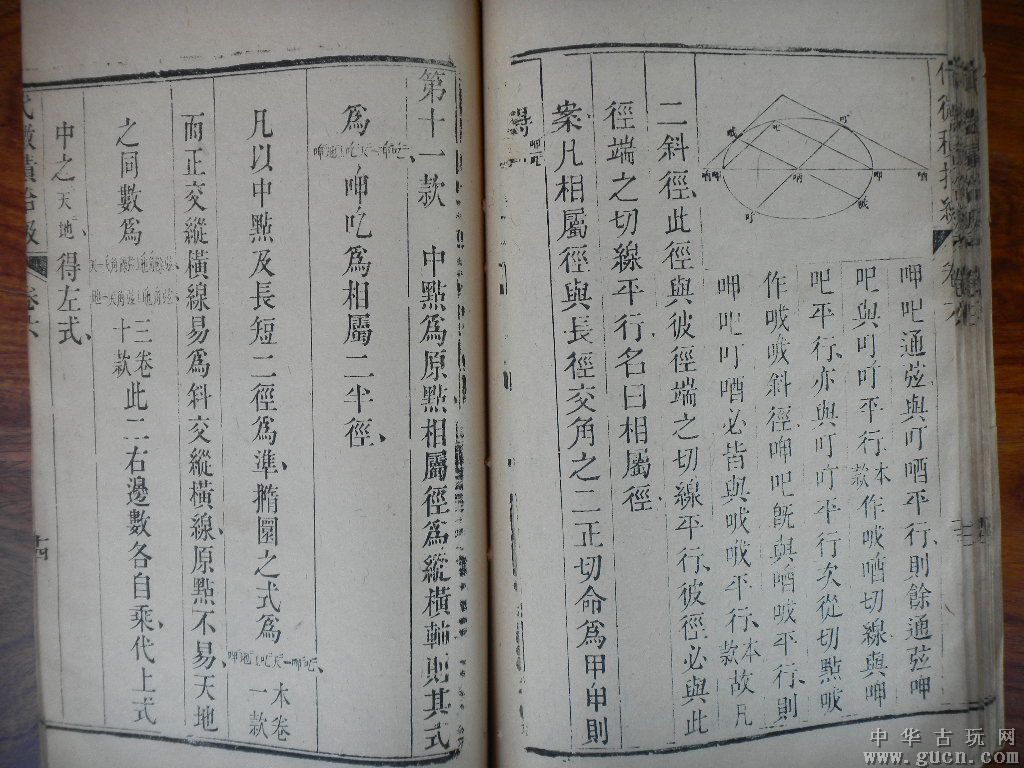 呷吧通弦與叮唒平行、則餘通弦呷
吧與叮吖平行、本款作哦唒切線與呷
吧平行、亦與叮吖平行、次從切點哦
作哦哦斜徑、呷吧旣與唒哦平行、則
呷吧叮唒必皆與哦哦平行、本款故凡
二斜徑、此徑與彼徑端之切線平行、彼徑必與此
徑端之切線平行、名曰相屬徑
案凡相屬徑與長徑交角之二正切命爲甲申則
得
第十一款 中點爲原點、相屬徑爲縱橫軸、則其式
爲 呷吃爲相屬二半徑、
凡以中點及長短二徑爲準、橢圜之式爲 本卷一款
而正交縱橫線易爲斜交縱橫線、原點不易、天地
之同數爲 三卷十款此二右邊數各自乘、代上式
中之天地、得左式、
積拾級 卷六 十四
中华古玩网
www.gucn.com